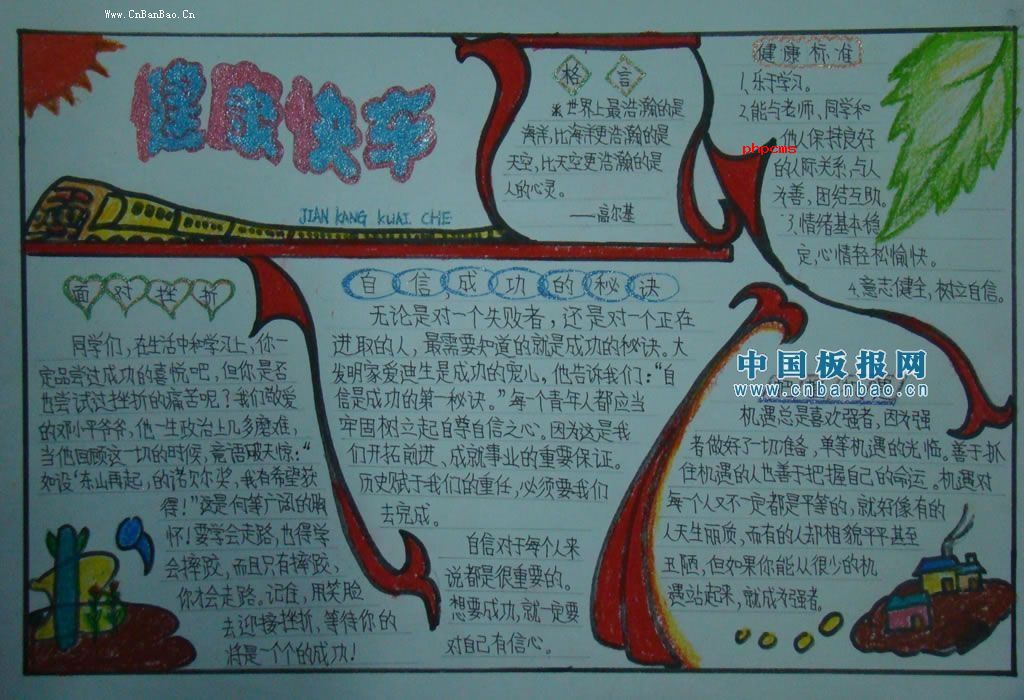 www.CnBanBao.Cn
健康快车
JIAN KANG KUAI CHE
格言
※世界上最浩瀚的是
海洋,比海洋更浩瀚的是
天空,比天空更浩瀚的是
人的心灵。
——高尔基
健康标准
1.乐于学习。
2.能与老师、同学和
他人保持良好
phpcms
的人际关系,与人
为善,团结互助。
3.情绪基本稳
定,心情轻松愉快。
4.意志健全,树立自信。
面对挫折
同学们,在生活中和学习上,你一
定品尝过成功的喜悦吧,但你是否
也尝试过挫折的痛苦呢?我们敬爱
的邓小平爷爷,他一生政治上几多磨难,
当他回顾这一切的时候,竟语破天惊:“
如设‘东山再起,的诺尔奖,我有希望获
得!”这是何等广阔的胸
怀!要学会走路,也得学
会摔跤,而且只有摔跤,
你才会走路。记住,用笑脸
去迎接挫折,等待你的
将是一个个的成功!
自信,成功的秘诀
无论是对一个失败者,还是对一个正在
进取的人,最需要知道的就是成功的秘诀。大
发明家爱迪生是成功的宠儿,他告诉我们:“自
信是成功的第一秘诀。”每一个青年人都应当
牢固树立起自尊自信之心。因为这是我
们开拓前进、成就事业的重要保证。
历史赋于我们的重任,必须要我们
去完成。
自信对于每个人来
说都是很重要的。
想要成功,就一定要
对自己有信心。
中国板报网
www.cnbanbao.cn
机遇总是喜欢强者,因为强
者做好了一切准备,单等机遇的光临。善于抓
住机遇的人也善于把握自己的命运。机遇对
每个人又不一定都是平等的,就好像有的
人天生丽质,而有的人却相貌平平甚至
丑陋,但如果你能从很少的机
遇站起来,就成为强者。